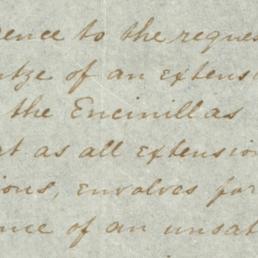 ence to the reques
ntze of an extensi
the Encinillas
at as all extension
ions, envolves for
nce of an unsat